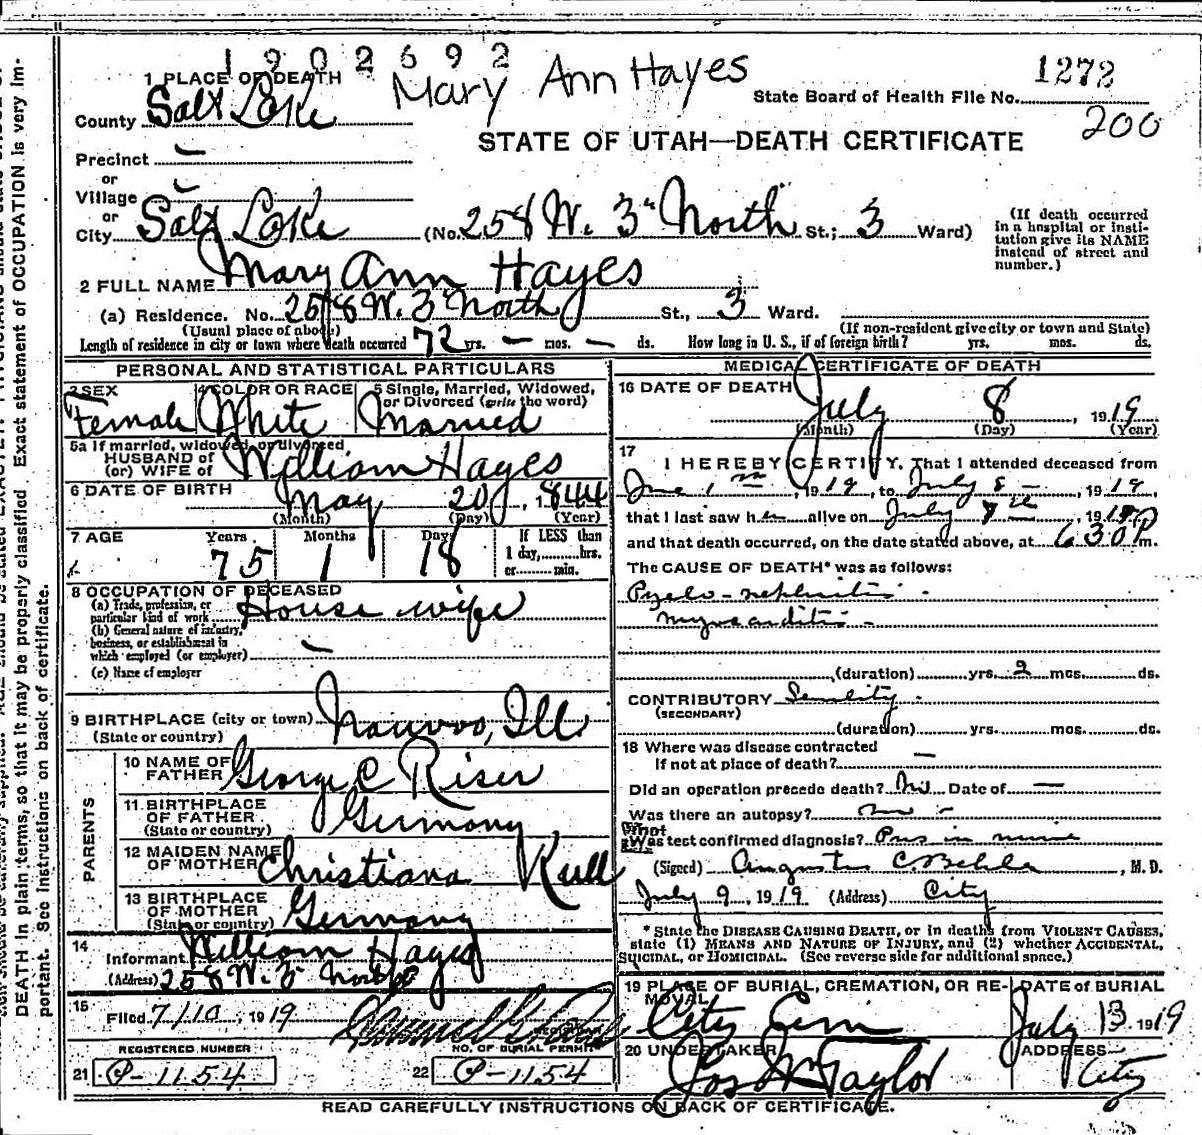 1902692
Mary Ann Hayes
1272
200
1 PLACE OF DEATH
County Salt Lake
State Board of Health File No.
STATE OF UTAH—DEATH CERTIFICATE
Precinct —
or
Village
or
City Salt Lake (No. 258 W. 3" North St.; 3 Ward)
(If death occurred in a hospital or institution give its NAME instead of street and number.)
2 FULL NAME Mary Ann Hayes
(a) Residence. No. 258 W. 3" North St., 3 Ward.
(Usual place of abode) (If non-resident give city or town and State)
Length of residence in city or town where death occurred 72 yrs. — mos. — ds. How long in U. S., if of foreign birth? yrs. mos. ds.
PERSONAL AND STATISTICAL PARTICULARS
3 SEX Female
4 COLOR OR RACE White
5 Single, Married, Widowed, or Divorced (write the word) Married
5a If married, widowed, or divorced,
HUSBAND of
(or) WIFE of William Hayes
6 DATE OF BIRTH May 20, 1844
(Month) (Day) (Year)
7 AGE Years 75 Months 1 Days 18
If LESS than
1 day, hrs.
or min.
8 OCCUPATION OF DECEASED
(a) Trade, profession, or
particular kind of work House wife
(b) General nature of industry,
business, or establishment in
which employed (or employer) —
(c) Name of employer
9 BIRTHPLACE (city or town) Nauvoo, Ill.
(State or country)
PARENTS
10 NAME OF FATHER George C Riser
11 BIRTHPLACE OF FATHER Germany
(State or country)
12 MAIDEN NAME OF MOTHER Christiana Kull
13 BIRTHPLACE OF MOTHER Germany
(State or country)
14
Informant William Hayes
(Address) 258 W. 3" North
15
Filed 7/10, 1919
REGISTRAR
REGISTERED NUMBER
21 P-1154
NO. OF BURIAL PERMIT
22 P-1154
MEDICAL CERTIFICATE OF DEATH
16 DATE OF DEATH July 8, 1919
(Month) (Day) (Year)
17
I HEREBY CERTIFY, That I attended deceased from
June 1, 1919, to July 8, 1919,
that I last saw her alive on July, 191
and that death occurred, on the date stated above, at 6 30 P m.
The CAUSE OF DEATH* was as follows:
Pyelo-nephritis
myocarditis
(duration) yrs. 2 mos. ds.
CONTRIBUTORY Senility
(SECONDARY)
(duration) yrs. mos. ds.
18 Where was disease contracted
If not at place of death? —
Did an operation precede death? No Date of —
Was there an autopsy? no
What test confirmed diagnosis? Pus in urine
(Signed) Augustus C. Behle, M. D.
July 9, 1919 (Address) City
* State the DISEASE CAUSING DEATH, or in deaths from VIOLENT CAUSES,
state (1) MEANS AND NATURE OF INJURY, and (2) whether ACCIDENTAL,
SUICIDAL, or HOMICIDAL. (See reverse side for additional space.)
19 PLACE OF BURIAL, CREMATION, OR REMOVAL City Cem
DATE of BURIAL July 13 1919
20 UNDERTAKER Jos Wm Taylor
ADDRESS City
READ CAREFULLY INSTRUCTIONS ON BACK OF CERTIFICATE.
DEATH in plain terms, so that it may be properly classified. Exact statement of OCCUPATION is very im-
portant. See Instructions on back of certificate.